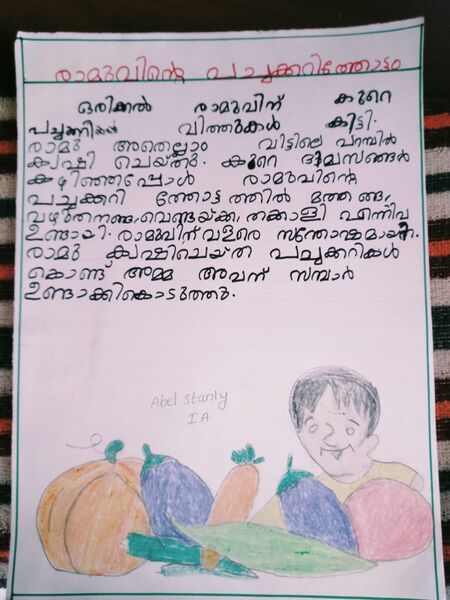 രാമുവിന്റെ പച്ചക്കറിത്തോട്ടം
ഒരിക്കൽ രാമുവിന് കുറെ
പച്ചക്കറികൾ വിത്തുകൾ കിട്ടി.
രാമു അതെല്ലാം വീട്ടിലെ പറമ്പിൽ
കൃഷി ചെയ്തു. കുറെ ദിവസങ്ങൾ
കഴിഞ്ഞപ്പോൾ രാമുവിന്റെ
പച്ചക്കറി ത്തോട്ടത്തിൽ മത്തങ്ങ,
വഴുതനങ്ങ, വെണ്ടയ്ക്ക, തക്കാളി എന്നിവ
ഉണ്ടായി. രാമുവിന് വളരെ സന്തോഷമായി.
രാമു കൃഷിചെയ്ത പച്ചക്കറികൾ
കൊണ്ട് അമ്മ അവന് സമ്പാർ
ഉണ്ടാക്കികൊടുത്തു.
Abel Stanly
I A